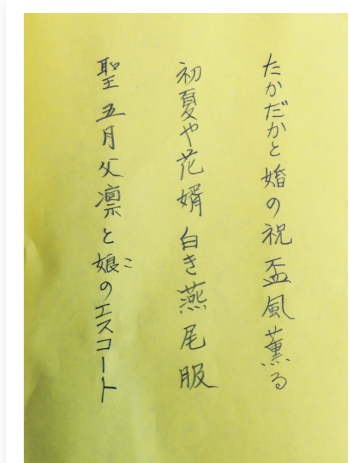 たかだかと婚の祝盃風薫る
初夏や花婿白き燕尾服
聖五月父凛と娘のエスコート
こ